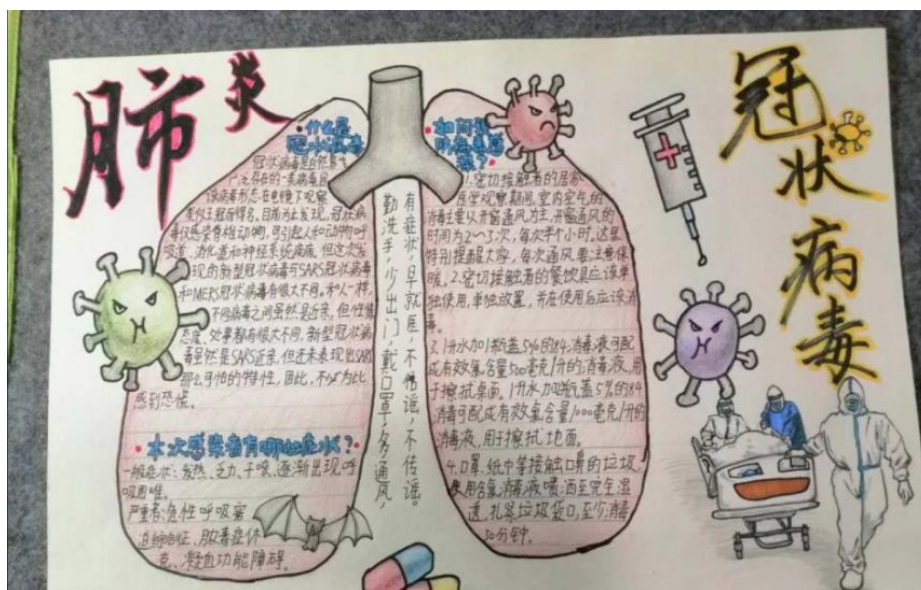 肺炎
冠状病毒
什么是
冠状病毒
冠状病毒是自然界
广泛存在的一类病毒因
该病毒形态在电镜下观察
类似王冠而得名。目前为止发现，冠状病
毒仅感染脊椎动物，可引起人和动物呼
吸道、消化道和神经系统疾病。但这次发
现的新型冠状病毒与SARS冠状病毒
和MERS冠状病毒有很大不同。和人一样，
不同病毒之间虽然是近亲，但性情
态度、处事都有很大不同，新型冠状病
毒虽然是SARS近亲，但还未表现出SARS
那么可怕的特性，因此，不必为此
感到恐慌。
本次感染者有哪些症状？
一般症状：发热、乏力、干咳、逐渐出现呼
吸困难。
严重者：急性呼吸窘
迫综合征、脓毒症休
克、凝血功能障碍。
有症状，早就医，不信谣，不传谣。
勤洗手，少出门，戴口罩，多通风，
如何预
防病毒感
染？
1.密切接触者的居家
医学观察期间，室内空气的
消毒主要以开窗通风为主，开窗通风的
时间为2～3次，每次半个小时。这里
特别提醒大家，每次通风要注意保
暖。2.密切接触者的餐饮具应该单
独使用，单独放置，并在使用后应该消
毒。
3.1升水加1瓶盖5%的84消毒液可配
成有效氯含量500毫克/升的消毒液，用
于擦拭桌面。1升水加2瓶盖5%的84
消毒可配成有效氯含量1000毫克/升的
消毒液，用于擦拭地面。
4.口罩、纸巾等接触口鼻的垃圾，
使用含氯消毒液喷洒至完全湿
透，扎紧垃圾袋口，至少消毒
30分钟。